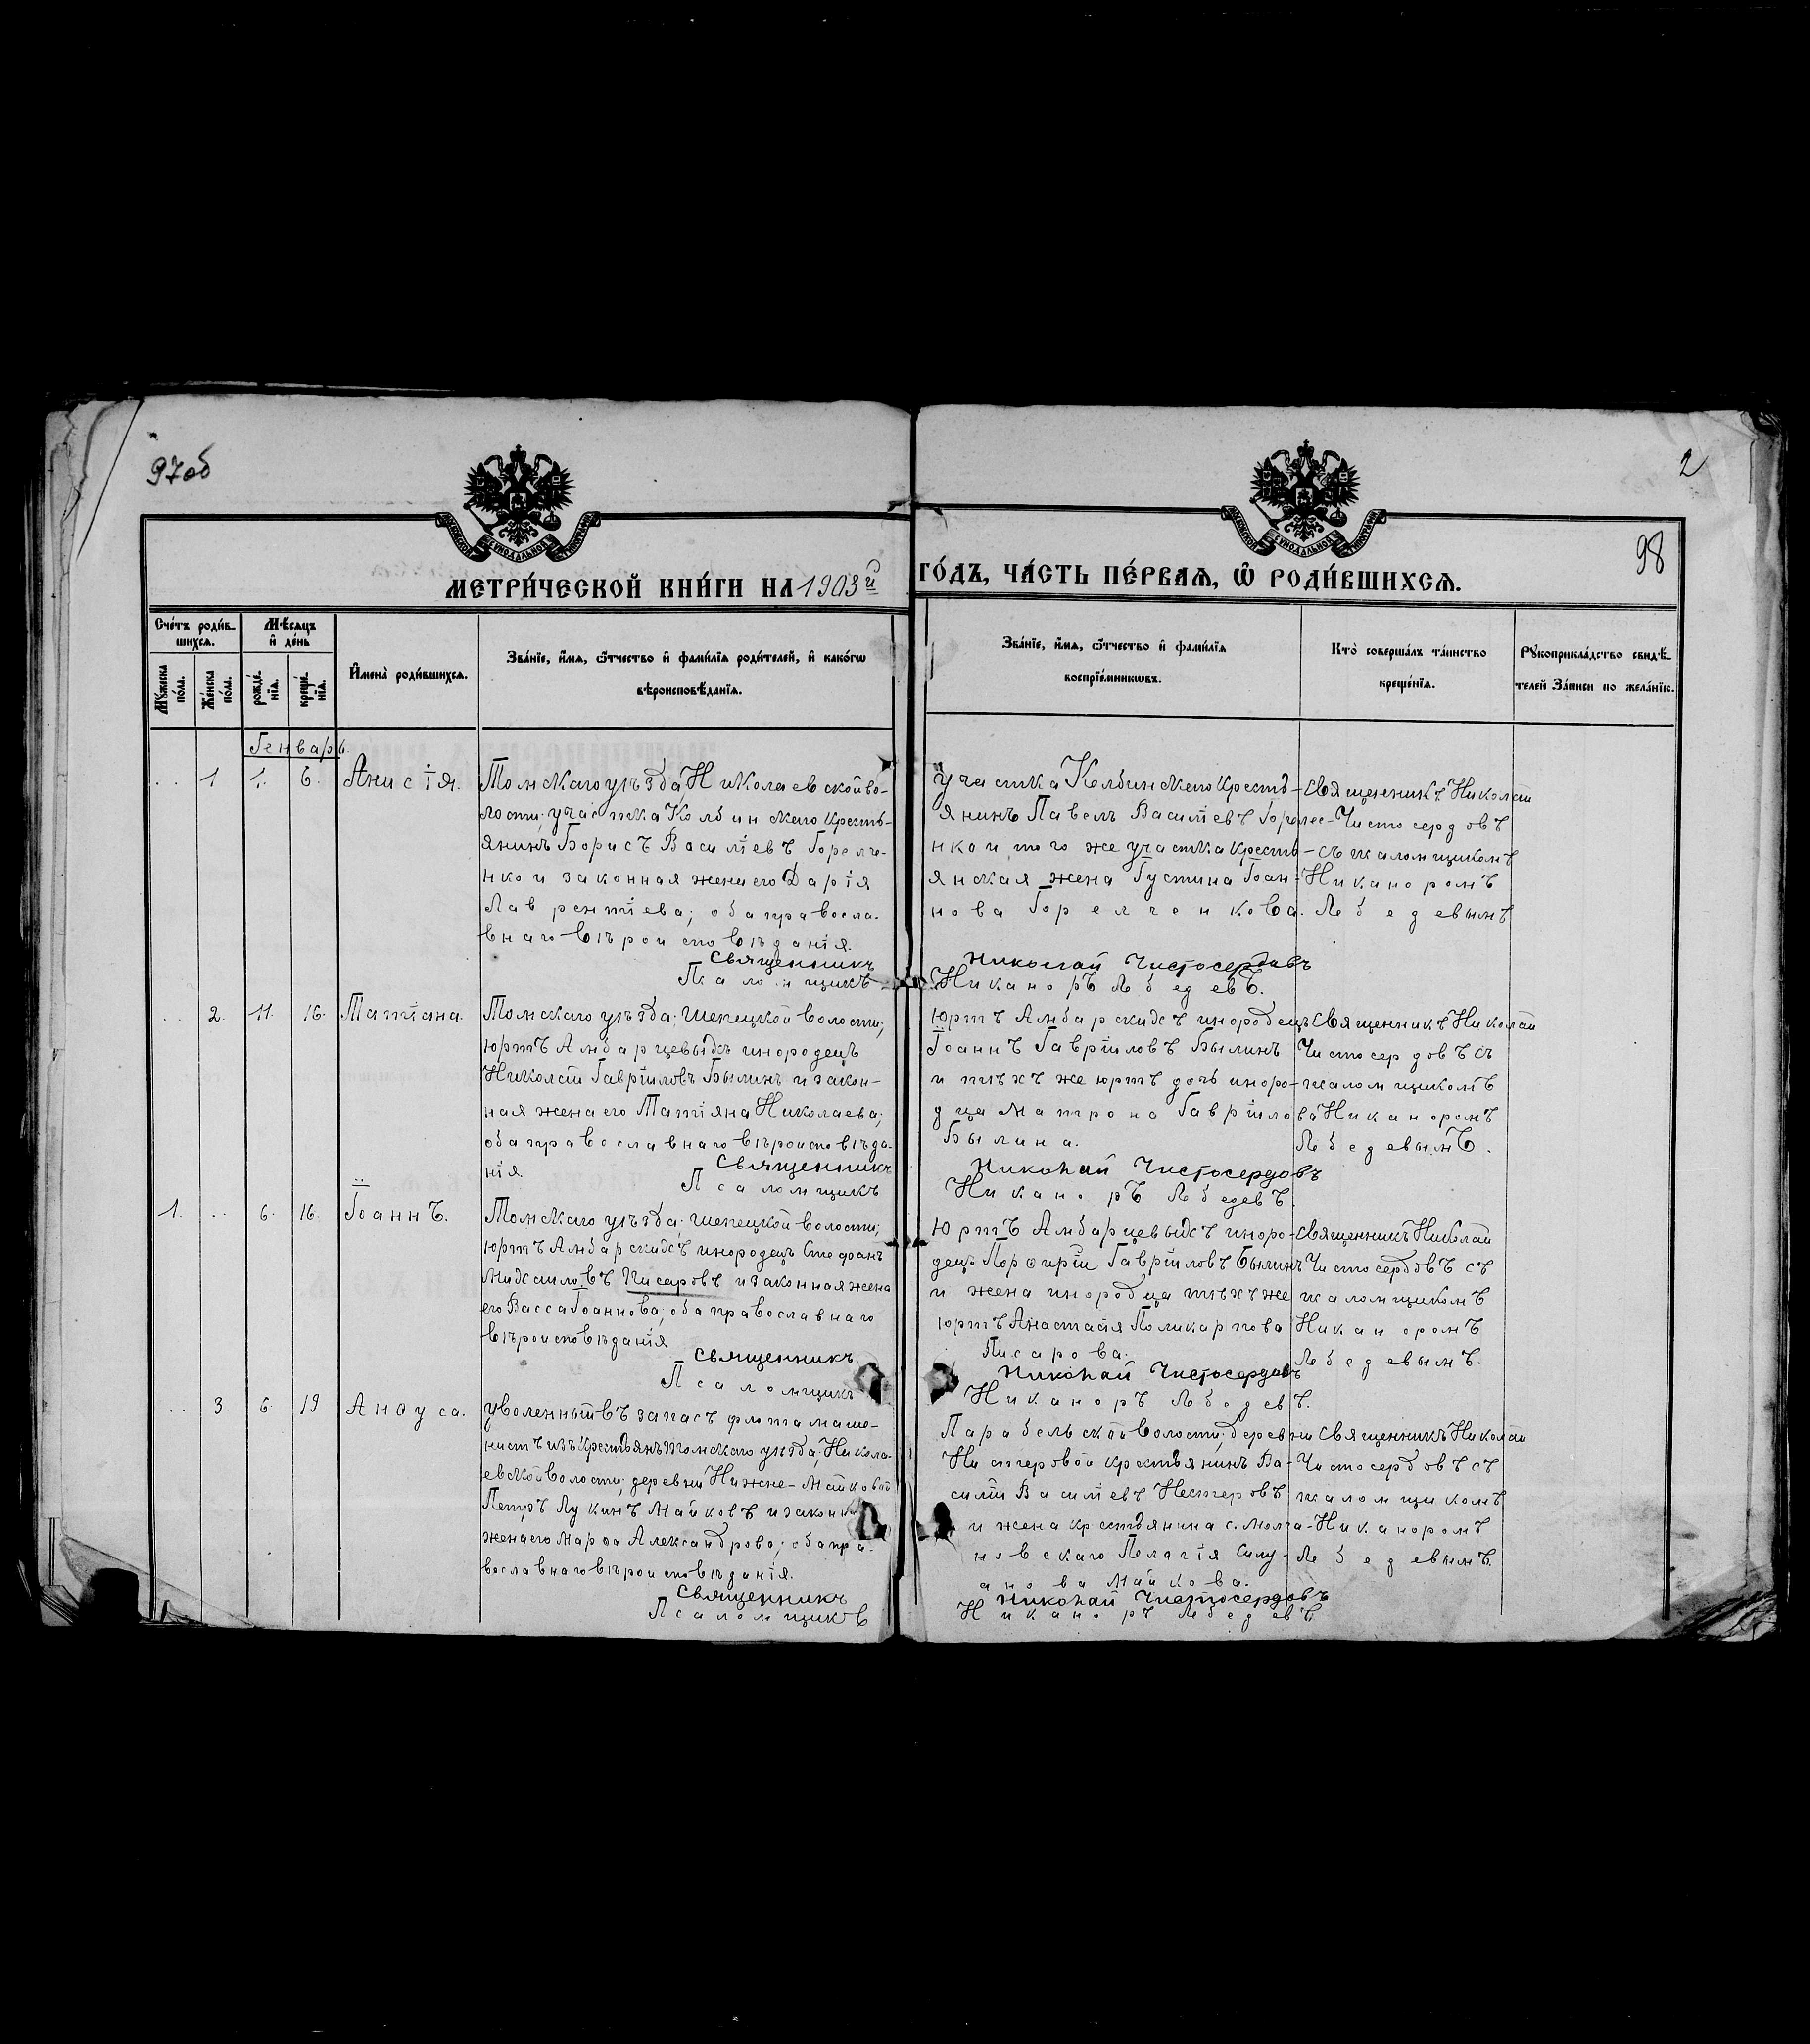 97об
2
98
МОСКОВСКОЙ СѴНОДАЛЬНОЙ ТИПОГРАФІИ
МОСКОВСКОЙ СѴНОДАЛЬНОЙ ТИПОГРАФІИ
МЕТРИ́ЧЕСКОЙ КНИ́ГИ НА 1903й ГО́ДЪ, ЧА́СТЬ ПЕ́РВАѦ, Ѿ РОДИ́ВШИХСѦ.
Сче́тъ роди́в-
шихсѧ.
Мꙋ́жеска по́ла.
Же́нска по́ла.
Мѣ́сѧцъ
и҆ де́нь
рожде́-
нїѧ.
креще́-
нїѧ.
И҆мена̀ роди́вшихсѧ.
Зва́нїе, и҆́мѧ, ѻ҆́тчество и҆ фами́лїѧ роди́телей, и҆ како́гѡ
вѣроисповѣ́данїѧ.
Зва́нїе, и҆́мѧ, ѻ҆́тчество и҆ фами́лїѧ
воспрїе́мникѡвъ.
Кто̀ соверша́лъ та́инство
креще́нїѧ.
Рꙋкоприкла́дство свидѣ́-
телей За́писи по жела́нїю.
Генварь.
.. 1 1. 6. Анисія.
Томскаго уѣзда, Николаевской во-
лости; участка Колбинскаго кресть-
янинъ Борисъ Василіевъ Горелче-
нко и законная жена его Дарія
Лаврентіева; оба правосла-
внаго вѣроисповѣданія.
Священникъ
Псаломщикъ
участка Колбинскаго кресть-
янинъ Павелъ Василіевъ Горелче-
нко и того же участка кресть-
янская жена Іустина Іоан-
нова Горелченкова.
Николай Чистосердовъ
Никаноръ Лебедевъ.
Священникъ Николай
Чистосердовъ
съ псаломщикомъ
Никаноромъ
Лебедевымъ
.. 2. 11. 16. Татіана.
Томскаго уѣзда; Шепецкой волости;
юртъ Амбарцевыхъ инородецъ
Николай Гавріиловъ Былинъ и закон-
ная жена его Татіяна Николаева;
оба православнаго вѣроисповѣда-
нія.
Священникъ
Псаломщикъ
юртъ Амбарскихъ инородецъ
Іоаннъ Гавріиловъ Былинъ
и тѣхъ же юртъ дочь иноро-
дца Матрона Гавріилова
Былина.
Николай Чистосердовъ
Никаноръ Лебедевъ.
Священникъ Николай
Чистосердовъ съ
псаломщикомъ
Никаноромъ
Лебедевымъ.
1. .. 6. 16. Іоаннъ.
Томскаго уѣзда; Шепецкой волости;
юртъ Амбарскихъ инородецъ Стефанъ
Михаиловъ Писаровъ и законная жена
его Васса Іоаннова; оба православнаго
вѣроисповѣданія
Священникъ
Псаломщикъ
Юртъ Амбарцевыхъ иноро-
децъ Порфирій Гавріиловъ Былинъ
и жена инородца тѣхъ же
юртъ Анастасія Поликарпова
Писарова.
Николай Чистосердовъ
Никаноръ Лебедевъ.
Священникъ Николай
Чистосердовъ съ
псаломщикомъ
Никаноромъ
Лебедевымъ.
.. 3 6. 19 Анфуса.
уволенный въ запасъ флота маши-
нистъ изъ крестьянъ Томскаго уѣзда; Никола-
евской волости; деревни Нижне-Майковой
Петръ Лукинъ Майковъ и законная
жена его Марфа Александрова; оба пра-
вославнаго вѣроисповѣданія.
Священникъ
Псаломщикъ
Парабельской волости; деревни
Нистеровой крестьянинъ Ва-
силій Василіевъ Нестеровъ
и жена крестьянина с. Молча-
новскаго Пелагія Силу-
анова Майкова.
Николай Чистосердовъ
Никаноръ Лебедевъ
Священникъ Николай
Чистосердовъ съ
псаломщикомъ
Никаноромъ
Лебедевымъ.